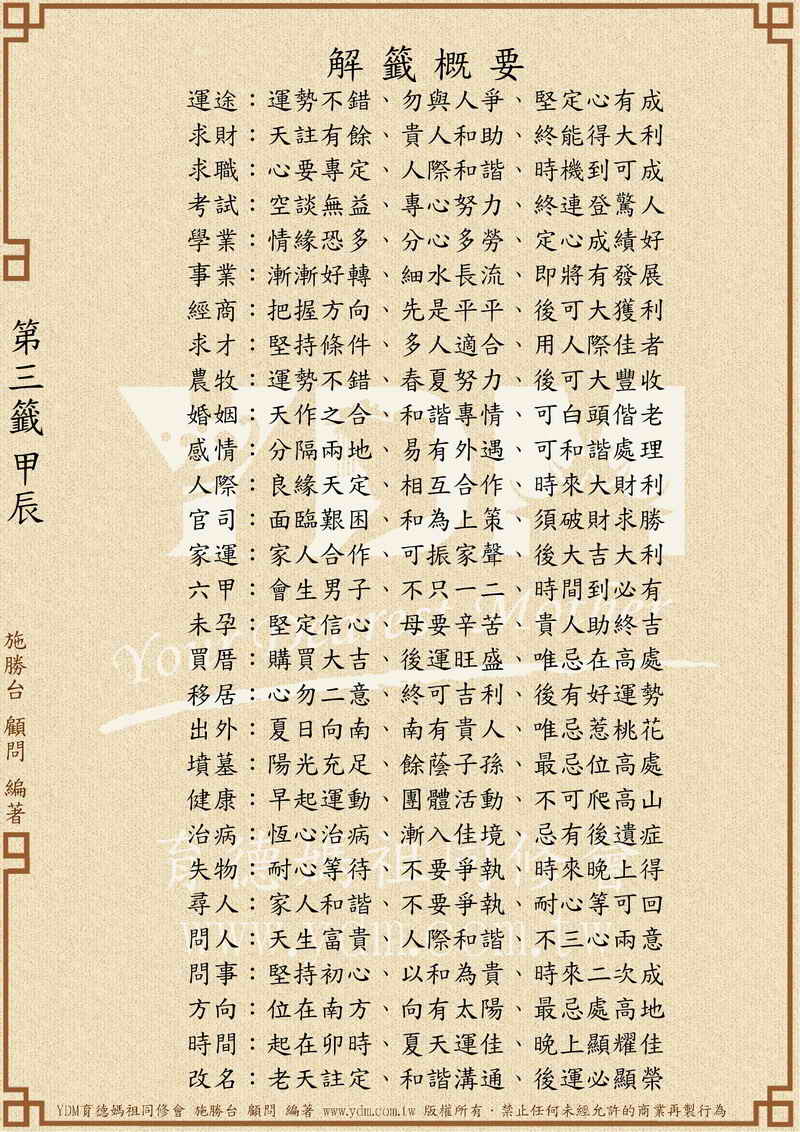 解籤概要
運途：運勢不錯、勿與人爭、堅定心有成
求財：天註有餘、貴人和助、終能得大利
求職：心要專定、人際和諧、時機到可成
考試：空談無益、專心努力、終連登驚人
學業：情緣恐多、分心多勞、定心成績好
事業：漸漸好轉、細水長流、即將有發展
經商：把握方向、先是平平、後可大獲利
求才：堅持條件、多人適合、用人際佳者
農牧：運勢不錯、春夏努力、後可大豐收
婚姻：天作之合、和諧專情、可白頭偕老
感情：分隔兩地、易有外遇、可和諧處理
人際：良緣天定、相互合作、時來大財利
官司：面臨艱困、和為上策、須破財求勝
家運：家人合作、可振家聲、後大吉大利
六甲：會生男子、不只一二、時間到必有
未孕：堅定信心、母要辛苦、貴人助終吉
買厝：購買大吉、後運旺盛、唯忌在高處
移居：心勿二意、終可吉利、後有好運勢
出外：夏日向南、南有貴人、唯忌惹桃花
墳墓：陽光充足、餘蔭子孫、最忌位高處
健康：早起運動、團體活動、不可爬高山
治病：恆心治病、漸入佳境、忌有後遺症
失物：耐心等待、不要爭執、時來晚上得
尋人：家人和諧、不要爭執、耐心等可回
問人：天生富貴、人際和諧、不三心兩意
問事：堅持初心、以和為貴、時來二次成
方向：位在南方、向有太陽、最忌處高地
時間：起在卯時、夏天運佳、晚上顯耀佳
改名：老天註定、和諧溝通、後運必顯榮
第三籤甲辰
施勝台 顧問 編著
YDM
Your Dearest Mother
育德媽祖同修會
www.ydm.com.tw
YDM育德媽祖同修會 施勝台 顧問 編著 www.ydm.com.tw 版權所有．禁止任何未經允許的商業再製行為